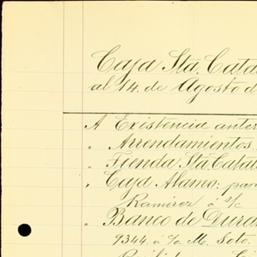 Caja Sta. Cata
al 14, de Agosto d
A Existencia anter
" Arrendamientos.
" Tienda Sta Catal
" Caja Alama: par
Ramirez á s/c
" Banco de Dura
9344 á s/o M. Soto.